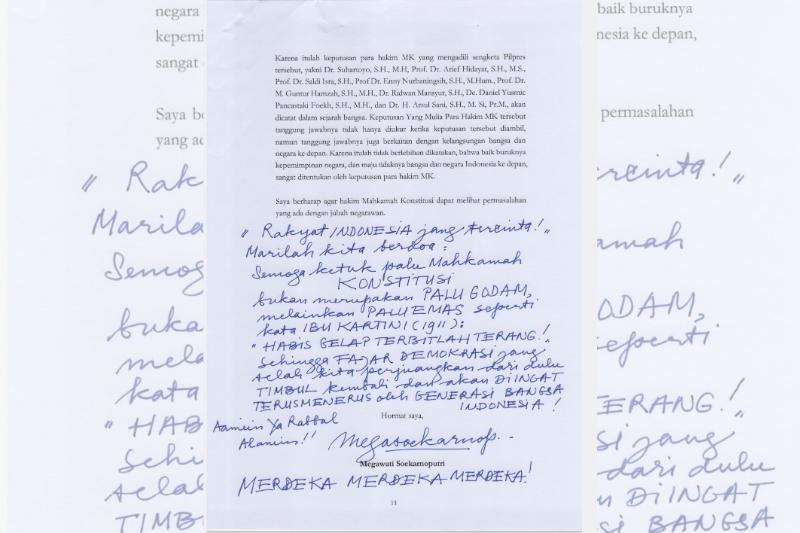 Karena itulah keputusan para hakim MK yang mengadili sengketa Pilpres
tersebut, yakni Dr. Suhartoyo, S.H., M.H, Prof. Dr. Arief Hidayat, S.H., M.S.,
Prof. Dr. Saldi Isra, S.H., Prof. Dr Enny Nurbaningsih, S.H., M.Hum., Prof. Dr.
M. Guntur Hamzah, S.H., M.H., Dr. Ridwan Mansyur, S.H., Dr. Daniel Yusmic
Pancastaki Foekh, S.H., M.H., dan Dr. H. Arsul Sani, S.H., M. Si, Pr.M., akan
dicatat dalam sejarah bangsa. Keputusan Yang Mulia Para Hakim MK tersebut
tanggung jawabnya tidak hanya diukur ketika keputusan tersebut diambil,
namun tanggung jawabnya juga berkaitan dengan kelangsungan bangsa dan
negara ke depan. Karena itulah tidak berlebihan dikatakan, bahwa baik buruknya
kepemimpinan negara, dan maju tidaknya bangsa dan negara Indonesia ke depan,
sangat ditentukan oleh keputusan para hakim MK.
Saya berharap agar hakim Mahkamah Konstitusi dapat melihat permasalahan
yang ada dengan jubah negarawan.
"Rakyat INDONESIA jang tercinta!"
Marilah kita berdoa:
Semoga ketuk palu Mahkamah
KONSTITUSI
bukan merupakan PALU GODAM,
melainkan PALU EMAS seperti
kata IBU KARTINI (1911):
"HABIS GELAP TERBITLAH TERANG!"
sehingga FAJAR DEMOKRASI jang
telah kita perjuangkan dari dulu
TIMBUL kembali dan akan DIINGAT
TERUSMENERUS oleh GENERASI BANGSA
INDONESIA!
Aamiin Ya Rabbal
Alamiin!!
Hormat saya,
Megawati Soekarnoputri
MERDEKA MERDEKA MERDEKA!
11